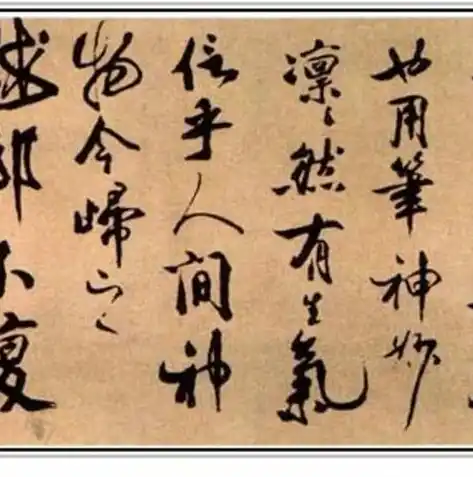 也用筆神妙
凛〻然有生氣
信乎人間神
物今歸之
不復